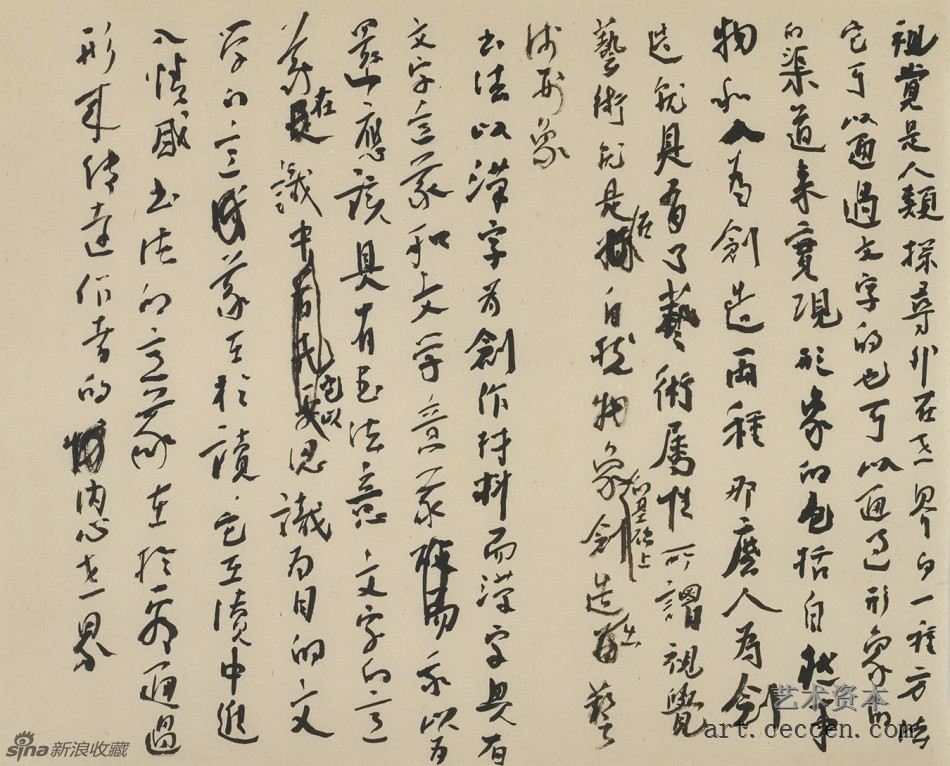 視覺是人類探尋外在世界的一種方法
它可以通過文字的也可以通過形象的
的渠道来實現形象的包括自然事
物和人為創造兩種那麼人為創
造就具有了藝術屬性所謂視覺
藝術就是在自然物象的基础上創造出藝
術形象
书法以漢字为創作材料而漢字具有
文字意義和文学意義我以为
還應該具有书法意文字的意
義在識中它以認識为目的文
学的意義在於讀它在讀中進
入情感书法的意義在於通過
形来傳達作者的内心世界
sina新浪收藏
艺术资本
art.ceccen.com